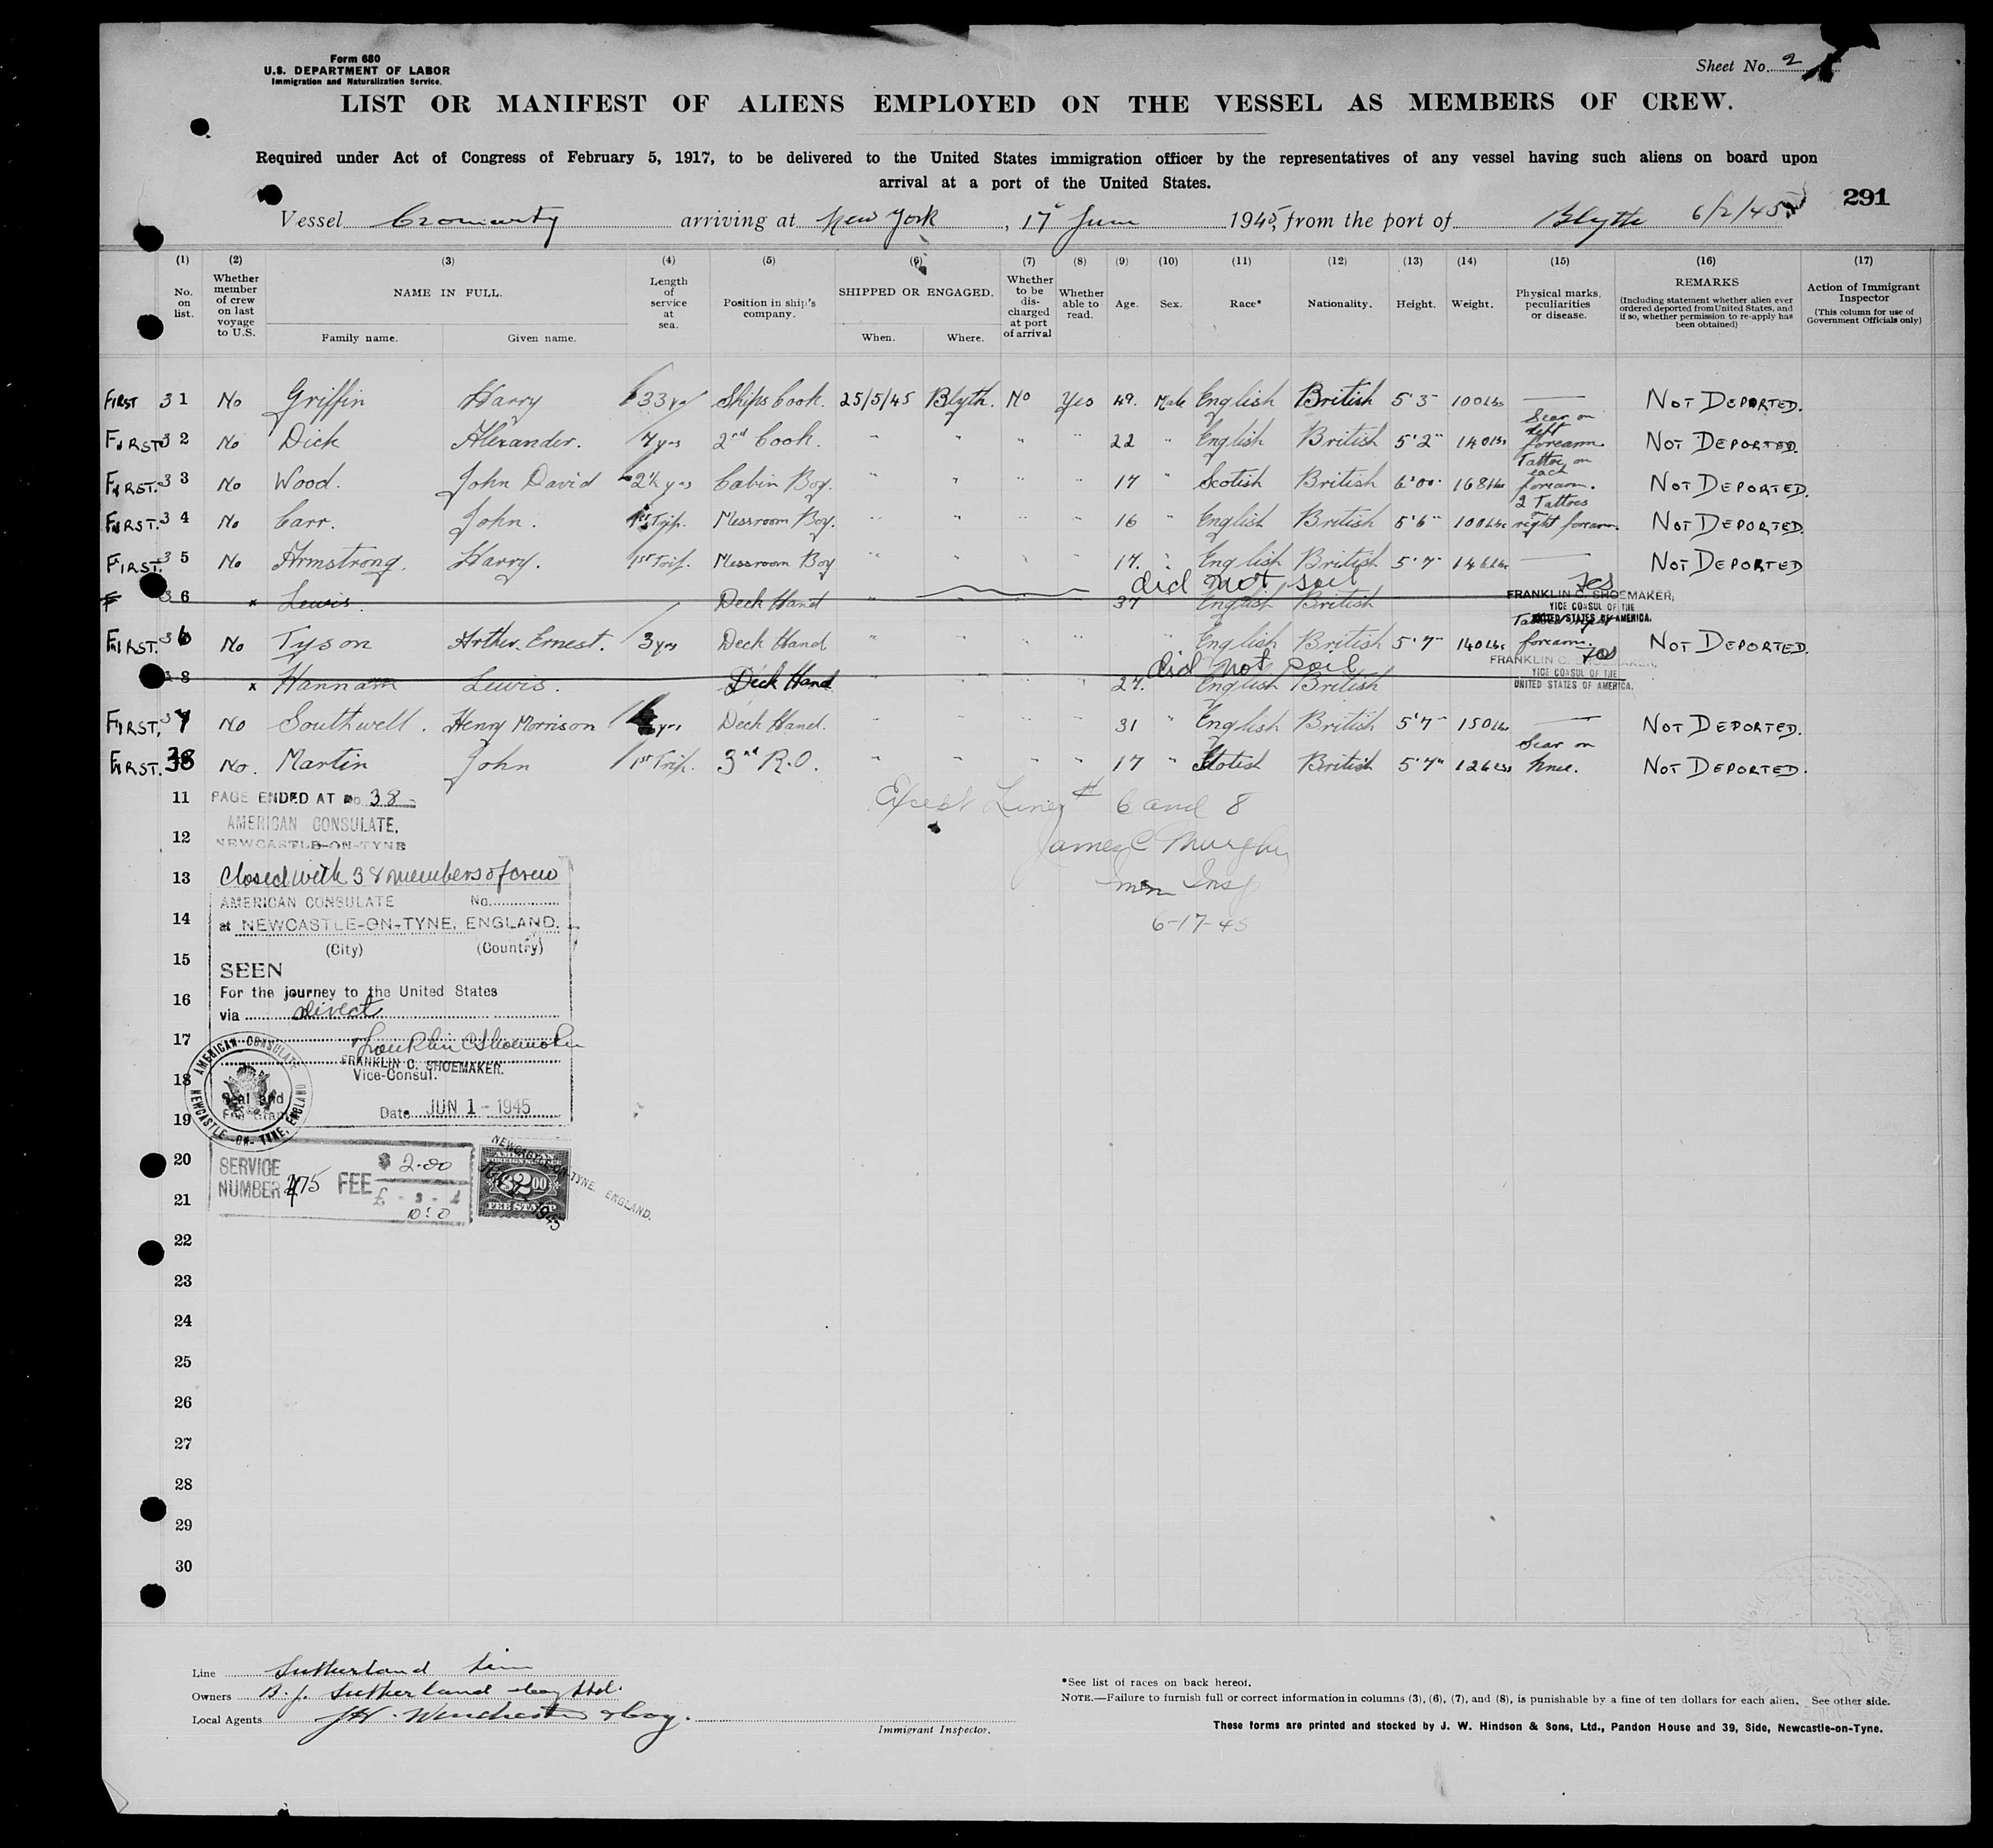 Form 680
U.S. DEPARTMENT OF LABOR
Immigration and Naturalization Service.
Sheet No. 2
LIST OR MANIFEST OF ALIENS EMPLOYED ON THE VESSEL AS MEMBERS OF CREW.
Required under Act of Congress of February 5, 1917, to be delivered to the United States immigration officer by the representatives of any vessel having such aliens on board upon
arrival at a port of the United States.
291
Vessel Cromarty arriving at New York, 17 June 1945, from the port of Blyth 6/2/45
(1) (2) (3) (4) (5) (6) (7) (8) (9) (10) (11) (12) (13) (14) (15) (16) (17)
No. on list.
Whether member of crew on last voyage to U.S.
NAME IN FULL.
Family name. Given name.
Length of service at sea.
Position in ship's company.
SHIPPED OR ENGAGED.
When. Where.
Whether to be discharged at port of arrival
Whether able to read.
Age.
Sex.
Race*
Nationality.
Height.
Weight.
Physical marks, peculiarities or disease.
REMARKS
(Including statement whether alien ever ordered deported from United States, and if so, whether permission to re-apply has been obtained)
Action of Immigrant Inspector
(This column for use of Government Officials only)
FIRST 31 No Griffin Harry 33 yrs Ships Cook. 25/5/45 Blyth. No Yes 49. Male English British 5'3" 100 lbs — NOT DEPORTED.
FIRST 32 No Dick Alexander. 4 yrs 2nd Cook. " " " " 22 " English British 5'2" 140 lbs Scar on left forearm. NOT DEPORTED.
FIRST. 33 No Wood. John David 2½ yrs Cabin Boy. " " " " 17 " Scotish British 6'00" 168 lbs Tattoo on each forearm. NOT DEPORTED.
FIRST. 34 No Carr. John. 1st Trip. Messroom Boy. " " " " 16 " English British 5'6" 100 lbs 2 Tattoos on right forearm. NOT DEPORTED.
FIRST. 35 No Armstrong. Harry. 1st Trip. Messroom Boy " " " " 17. " English British 5'7" — NOT DEPORTED
did not sail
36 x Lewis. Deck Hand 37 English British
FRANKLIN C. SHOEMAKER,
VICE CONSUL OF THE
UNITED STATES OF AMERICA.
FIRST. 36 No Tyson Arthur Ernest. 3 yrs Deck Hand " " " " " English British 5'7" 140 lbs forearm. NOT DEPORTED.
did not sail
38 x Hannam Lewis. Deck Hand " " " " 27. English British
FRANKLIN C. SHOEMAKER,
VICE CONSUL OF THE
UNITED STATES OF AMERICA.
FIRST. 37 No Southwell. Henry Morrison yrs Deck Hand. " " " " 31 " English British 5'7" 150 lbs — NOT DEPORTED.
FIRST. 38 No. Martin John 1st Trip. 3rd R.O. " " " " 17 " Scotish British 5'7" 126 lbs Scar on knee. NOT DEPORTED.
11 PAGE ENDED AT No 38
AMERICAN CONSULATE,
NEWCASTLE-ON-TYNE
Except Lines # 6 and 8
James C
Imm Insp
6-17-45
12
13 Closed with 38 members of crew
AMERICAN CONSULATE No.
14 at NEWCASTLE-ON-TYNE, ENGLAND.
(City) (Country)
15
SEEN
16 For the journey to the United States
via direct
17 Franklin C Shoemaker
FRANKLIN C. SHOEMAKER.
18 Vice-Consul.
AMERICAN CONSULATE
NEWCASTLE-ON-TYNE, ENGLAND
Seal and
Fee Stamp
19 Date JUN 1 - 1945
20 SERVICE
NUMBER 475 FEE $ 2.00
£ - 
10:0
AMERICAN
FOREIGN SERVICE
$2.00
FEE STAMP
NEWCASTLE-ON-TYNE, ENGLAND.
1945
21
22
23
24
25
26
27
28
29
30
Line Sutherland Line
Owners B. J. Sutherland & Coy Ltd.
Local Agents J.H. Winchester & Coy.
Immigrant Inspector.
*See list of races on back hereof.
NOTE.—Failure to furnish full or correct information in columns (3), (6), (7), and (8), is punishable by a fine of ten dollars for each alien. See other side.
These forms are printed and stocked by J. W. Hindson & Sons, Ltd., Pandon House and 39, Side, Newcastle-on-Tyne.